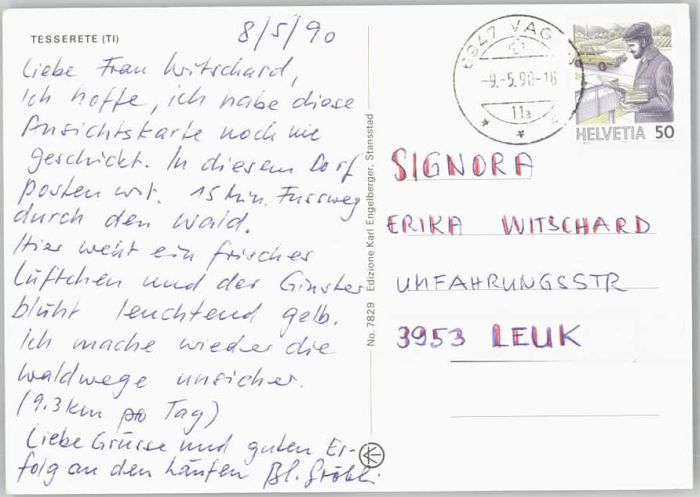 TESSERETE (TI)
8/5/90
Liebe Frau Witschard,
Ich hoffe, ich habe diese
Ansichtskarte noch nie
geschickt. In diesem Dorf
posten wir. 15 Min. Fussweg
durch den Wald.
Hier weht ein frisches
Lüftchen und der Ginster
blüht leuchtend gelb.
Ich mache wieder die
Waldwege unsicher.
(9.3 km pro Tag)
Liebe Grüsse und guten Er-
folg an den Läufen
No. 7829 Edizione Karl Engelberger, Stansstad
6947 VAG
-9.-5.90-18
11a
HELVETIA 50
SIGNORA
ERIKA WITSCHARD
UMFAHRUNGSSTR
3953 LEUK